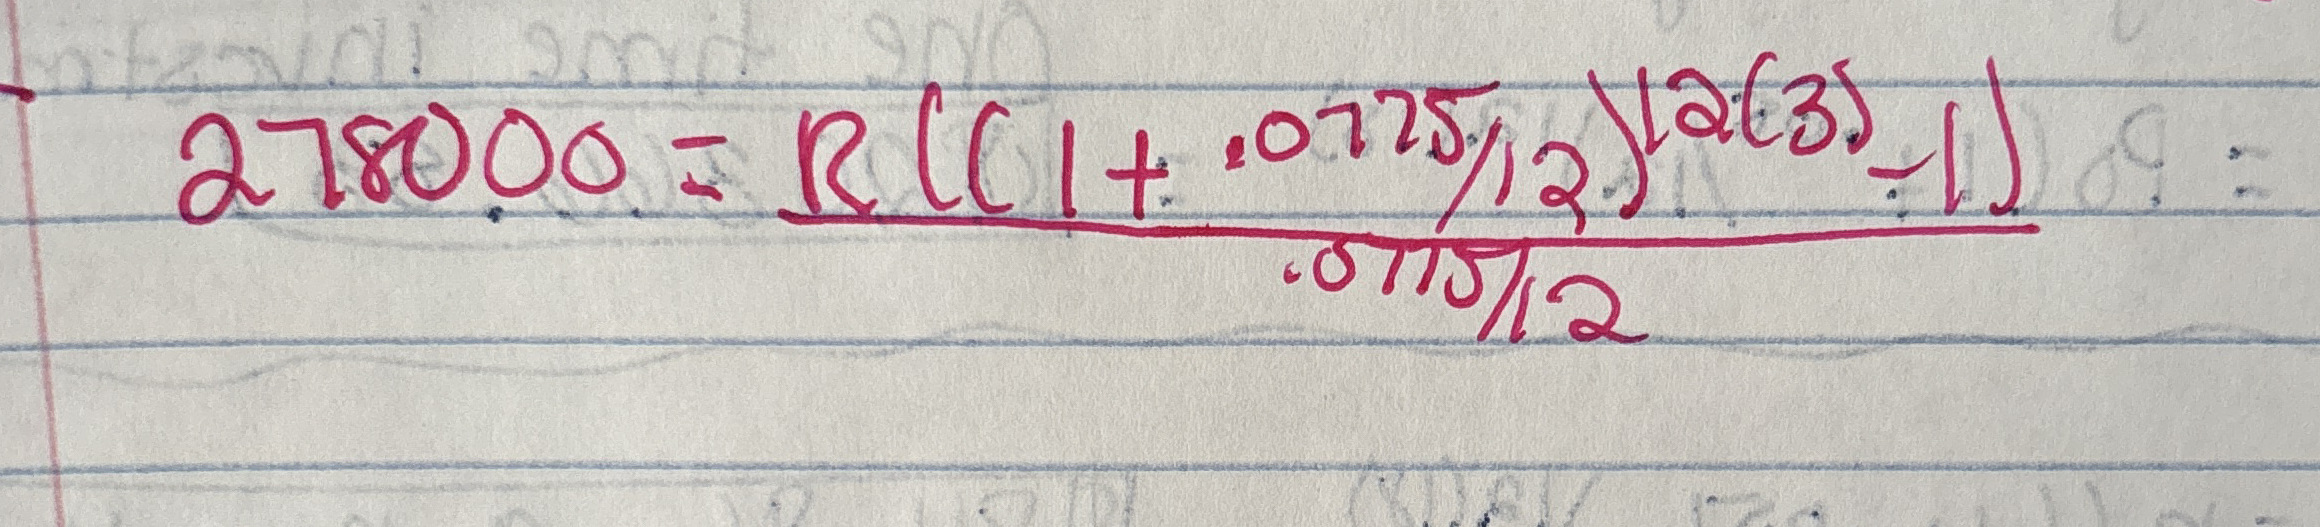 278000 = R((1 + .0775/12)^12(3) - 1)
.0775/12